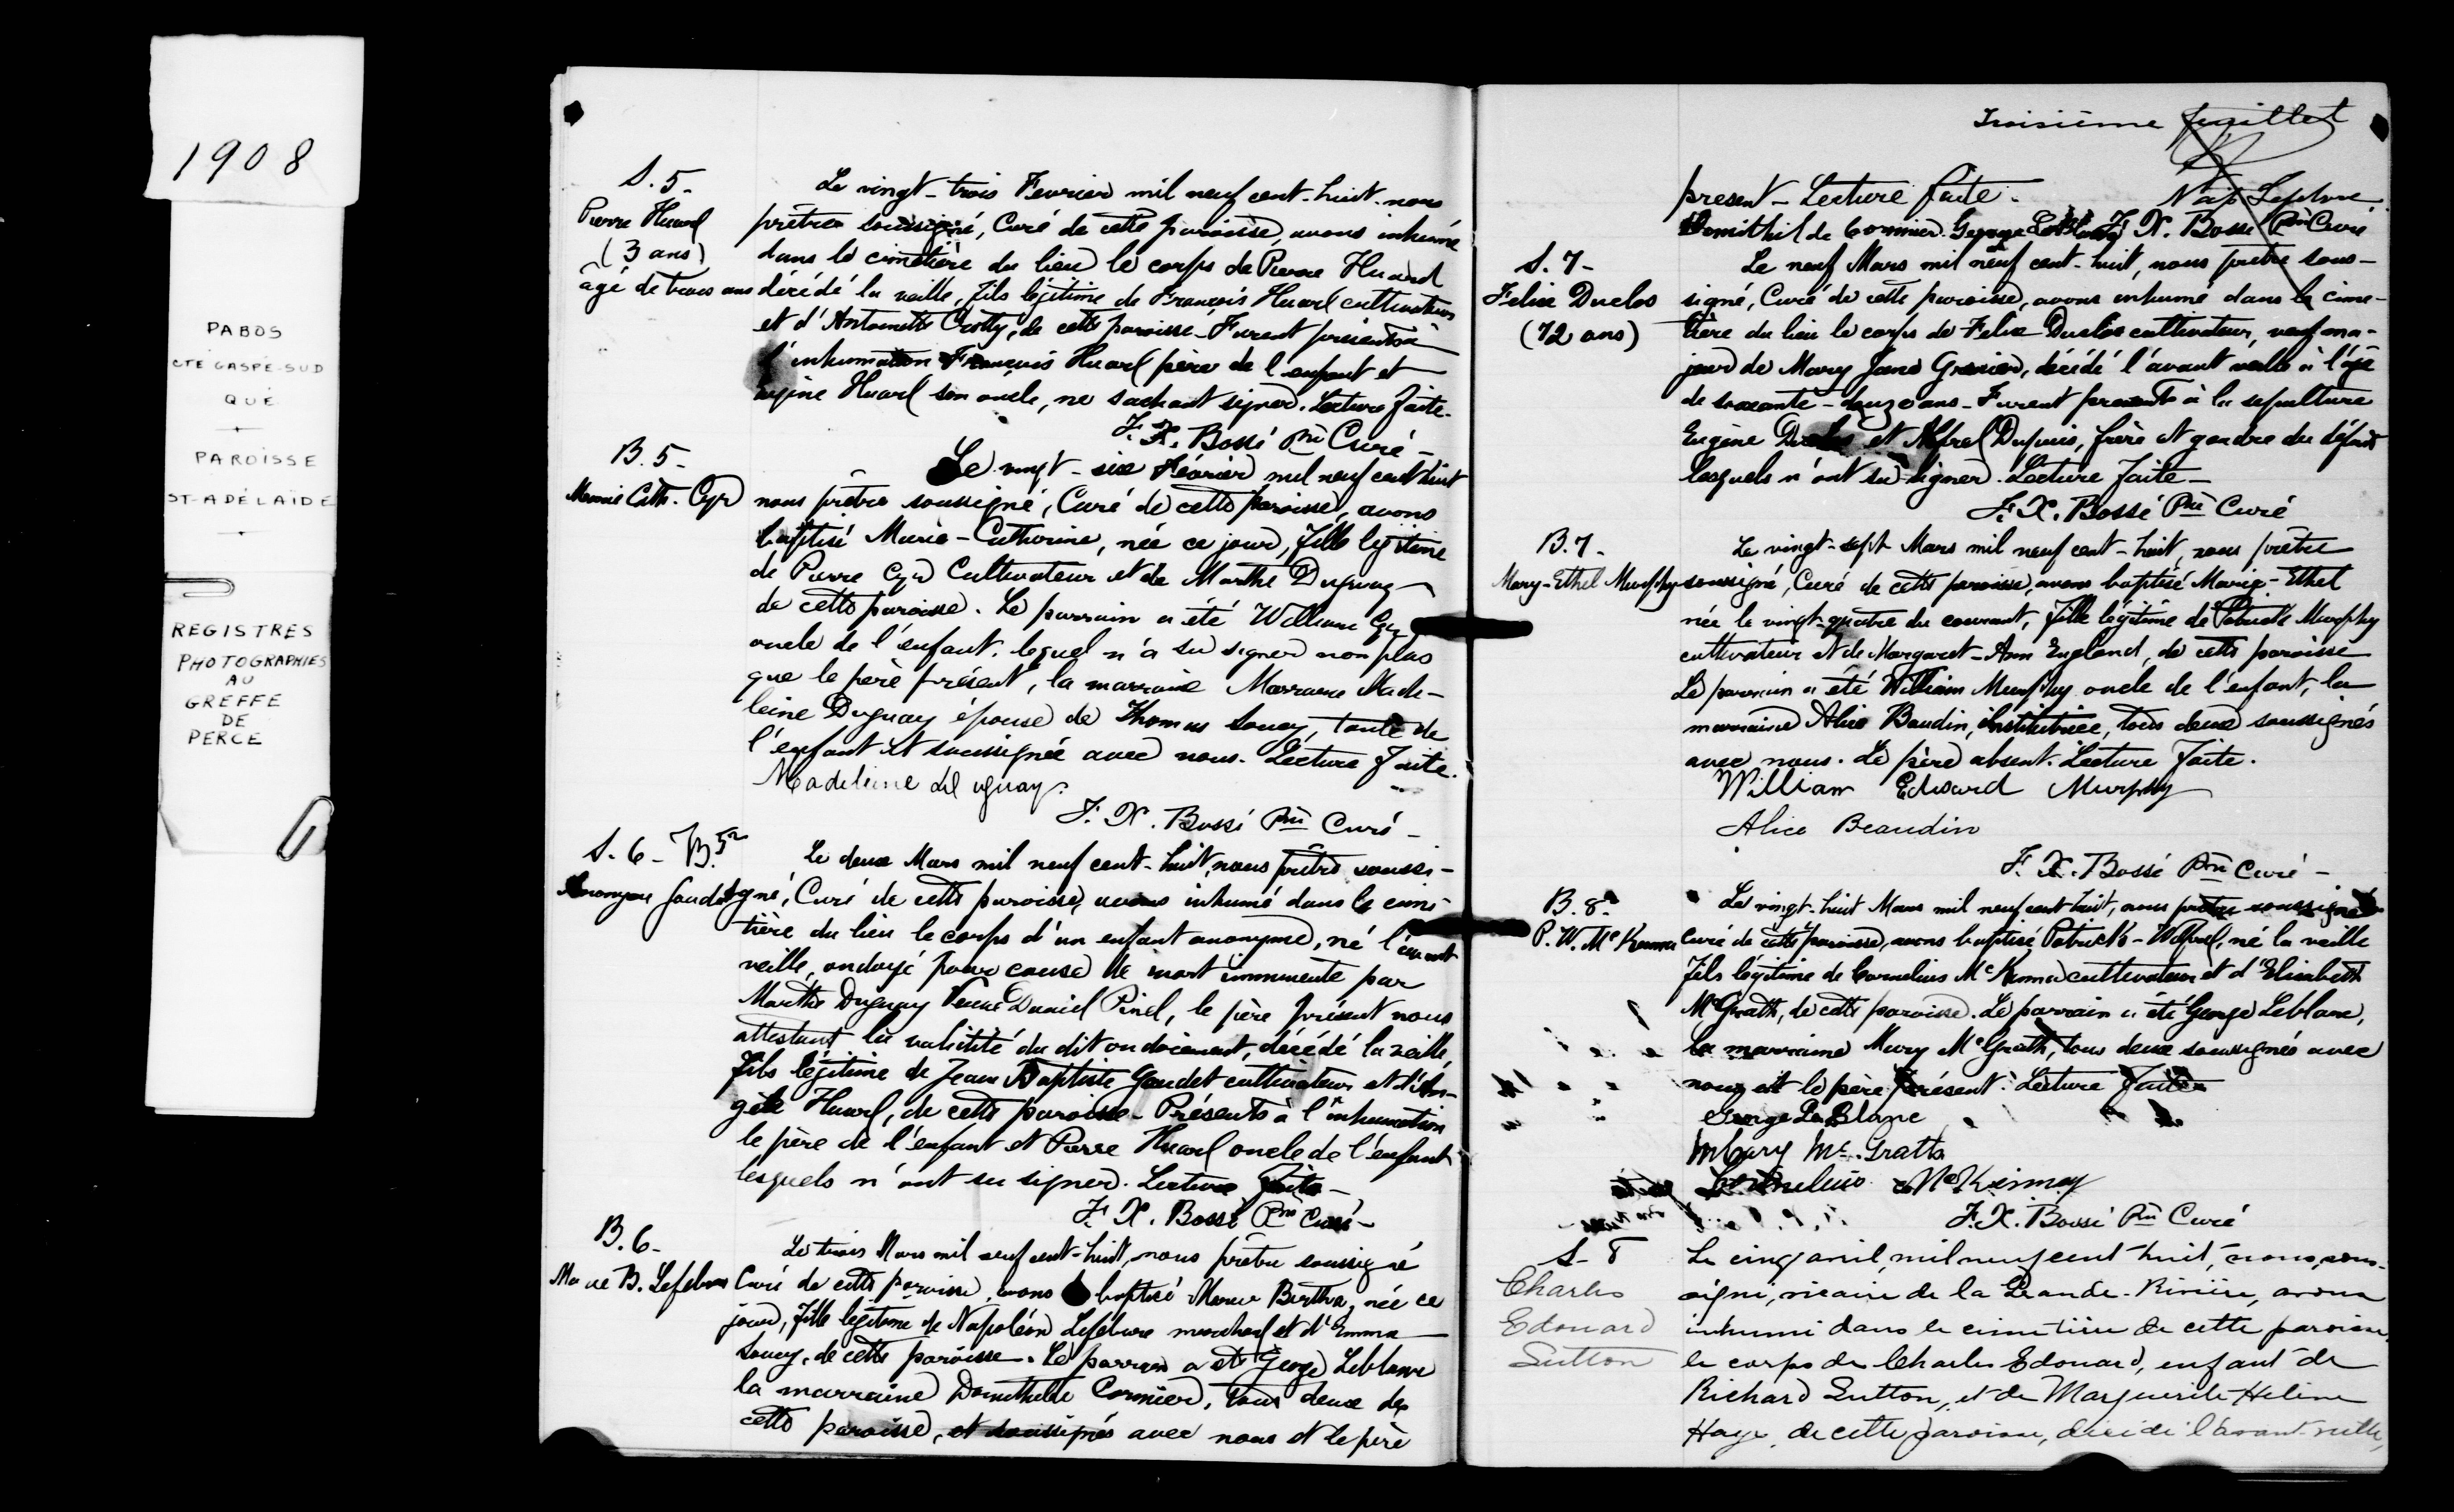 1908
PABOS
CTÉ GASPÉ-SUD
QUÉ
PAROISSE
ST-ADÉLAÏDE
REGISTRES
PHOTOGRAPHIÉS
AU
GREFFE
DE
PERCÉ
S. 5.
Pierre Huard
(3 ans)
âgé de trois ans
Le vingt-trois Fevrier mil neuf cent-huit nous
prêtre soussigné, Curé de cette paroisse, avons inhumé
dans le cimetière du lieu le corps de Pierre Huard
décédé la veille, fils légitime de François Huard cultivateur
et d'Antoinette Crotty, de cette paroisse. Furent présents à
l'inhumation François Huard père de l'enfant et
Eugène Huard son oncle, ne sachant signer. Lecture faite.
F. X. Bossé Ptre Curé -
B. 5-
Marie Cath. Cyr
Le vingt-six Février mil neuf cent huit
nous prêtre soussigné, Curé de cette paroisse, avons
baptisé Marie-Catherine, née ce jour, fille légitime
de Pierre Cyr Cultivateur et de Marthe Duguay
de cette paroisse. Le parrain a été William Cyr
oncle de l'enfant, lequel n'a su signer non plus
que le père présent, la marraine Marraine Made-
leine Duguay épouse de Thomas Soucy, tante de
l'enfant et soussignée avec nous. Lecture faite.
Madeleine Duguay.
F. X. Bossé Ptre Curé -
S. 6 - B. 5a
Anonyme Gaudet
Le deux Mars mil neuf cent-huit, nous prêtre soussi-
gné, Curé de cette paroisse, avons inhumé dans le cime-
tière du lieu le corps d'un enfant anonyme, né l'avant
veille, ondoyé pour cause de mort imminente par
Marthe Duguay Veuve Daniel Pinel, le père présent nous
attestant la validité du dit ondoiement, décédé la veille,
fils légitime de Jean Baptiste Gaudet cultivateur et d'An-
gèle Huard, de cette paroisse. Présents à l'inhumation
le père de l'enfant et Pierre Huard oncle de l'enfant
lesquels n'ont su signer. Lecture faite -
F. X. Bossé Ptre Curé -
B. 6-
Marie B. Lefebvre
Le trois Mars mil neuf cent-huit, nous prêtre soussigné
Curé de cette paroisse, avons baptisé Marie Bertha, née ce
jour, fille légitime de Napoléon Lefebvre marchand et d'Emma
Soucy, de cette paroisse. Le parrain a été George Leblanc
la marraine Domithilde Cormier, tous deux de
cette paroisse, et soussignés avec nous et le père
Troisième feuillet
présent - Lecture faite. Nap Lefebvre
Domithilde Cormier. George F. X. Bossé Ptre Curé
S. 7-
Felix Duclos
(72 ans)
Le neuf Mars mil neuf cent-huit, nous prêtre sous-
signé, Curé de cette paroisse, avons inhumé dans le cime-
tière du lieu le corps de Felix Duclos cultivateur, veuf ma-
jeur de Mary Jane Grenier, décédé l'avant veille à l'âge
de soixante-douze ans. Furent présents à la sepulture
Eugène Duclos et Alfred Dupuis, frère et gendre du défunt
lesquels n'ont su signer. Lecture faite -
F. X. Bossé Ptre Curé
B. 7-
Mary-Ethel Murphy
Le vingt-sept Mars mil neuf cent-huit, nous prêtre
soussigné, Curé de cette paroisse, avons baptisé Marie-Ethel
née le vingt-quatre du courant, fille légitime de Patrick Murphy
cultivateur et de Margaret-Ann England, de cette paroisse
Le parrain a été William Murphy oncle de l'enfant, la
marraine Alice Baudin, institutrice, tous deux soussignés
avec nous. Le père absent. Lecture faite.
William Edward Murphy
Alice Beaudin
F. X. Bossé Ptre Curé -
B. 8-
P. W. McKenna
Le vingt-huit Mars mil neuf cent huit, nous prêtre soussigné
Curé de cette paroisse, avons baptisé Patrick-Wilfred, né la veille
fils légitime de Cornelius McKenna cultivateur et d'Elisabeth
McGrath, de cette paroisse. Le parrain a été George Leblanc,
la marraine Mary McGrath, tous deux soussignés avec
nous et le père présent. Lecture faite
George LeBlanc
Mary Mc. Gratto
Cornelius McKinney
F. X. Bossé Ptre Curé
S- 8
Charles
Edouard
Sutton
Le cinq avril, mil neuf cent huit, nous, sous-
signé, vicaire de la Grande-Rivière, avons
inhumé dans le cimetière de cette paroisse,
le corps de Charles Edouard, enfant de
Richard Sutton, et de Marguerite Helène
Haye, de cette paroisse, décédé l'avant-veille,